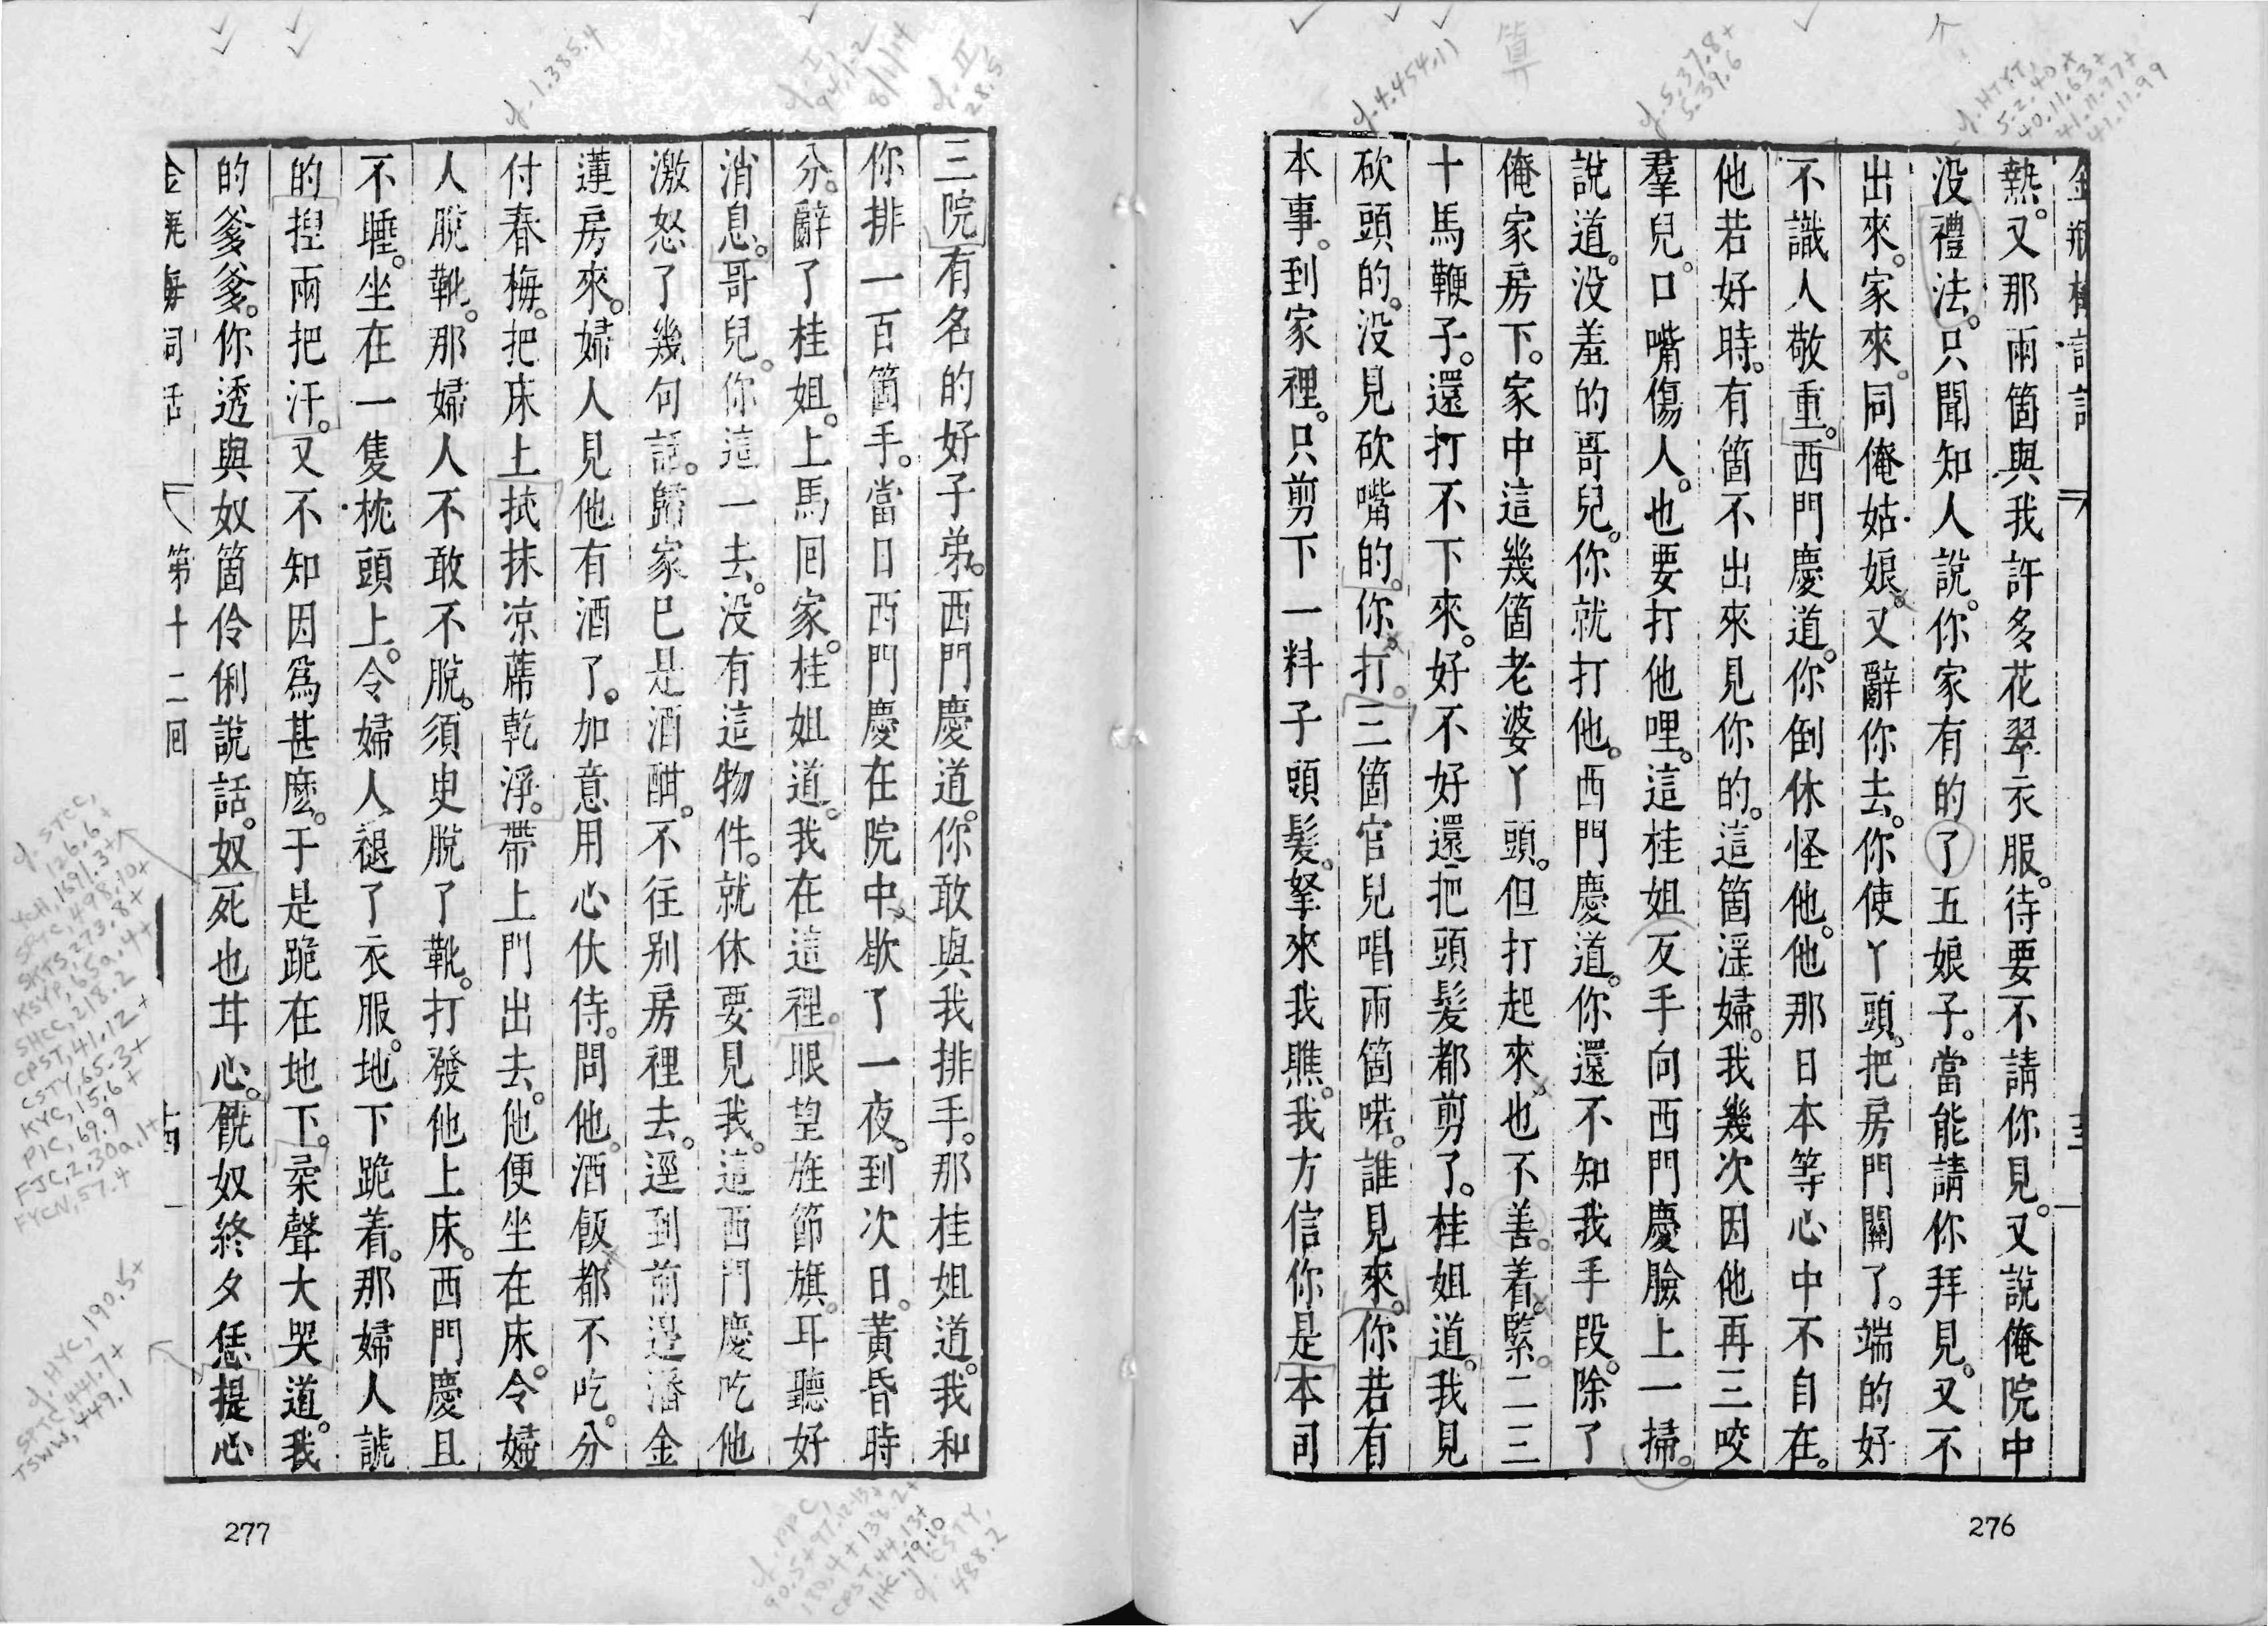 金瓶梅詞話
熱。又那兩箇與我許多花翠衣服。待要不請你見。又說俺院中
没禮法。只聞知人說。你家有的了五娘子。當能請你拜見。又不
出來。家來。同俺姑娘。又辭你去。你使丫頭。把房門關了。端的好
不識人敬重。西門慶道。你倒休怪他。他那日本等心中不自在。
他若好時。有箇不出來見你的。這箇淫婦。我幾次因他再三咬
羣兒。口嘴傷人。也要打他哩。這桂姐反手向西門慶臉上一掃。
說道。没羞的哥兒。你就打他。西門慶道。你還不知我手段。除了
俺家房下。家中這幾箇老婆丫頭。但打起來也不善。着緊。二三
十馬鞭子。還打不下來。好不好還把頭髮都剪了。桂姐道。我見
砍頭的。没見砍嘴的。你打。三箇官兒唱兩箇喏。誰見來。你若有
本事。到家裡。只剪下一料子頭髮。拏來我瞧。我方信你是本司
276
三院有名的好子弟。西門慶道。你敢與我排手。那桂姐道。我和
你排一百箇手。當日西門慶在院中歇了一夜。到次日。黃昏時
分。辭了桂姐。上馬囘家。桂姐道。我在這裡。眼望旌節旗。耳聽好
消息。哥兒。你這一去。没有這物件。就休要見我。這西門慶吃他
激怒了幾句話。歸家已是酒酣。不往别房裡去。逕到前邊潘金
蓮房來。婦人見他有酒了。加意用心伏侍。問他。酒飯都不吃。分
付春梅。把床上拭抹凉蓆乾淨。帶上門出去。他便坐在床。令婦
人脫靴。那婦人不敢不脫。須臾脫了靴。打發他上床。西門慶且
不睡。坐在一隻枕頭上。令婦人褪了衣服。地下跪着。那婦人諕
的捏兩把汗。又不知因爲甚麽。于是跪在地下。柔聲大哭道。我
的爹爹。你透與奴箇伶俐說話。奴死也甘心。饒奴終夕恁提心
金瓶梅詞話
第十二囘
十四
277
算
cf. 1.385.4
cf. 4.454.11
cf. 5.37.8+
5.39.6
cf. II,
28.5